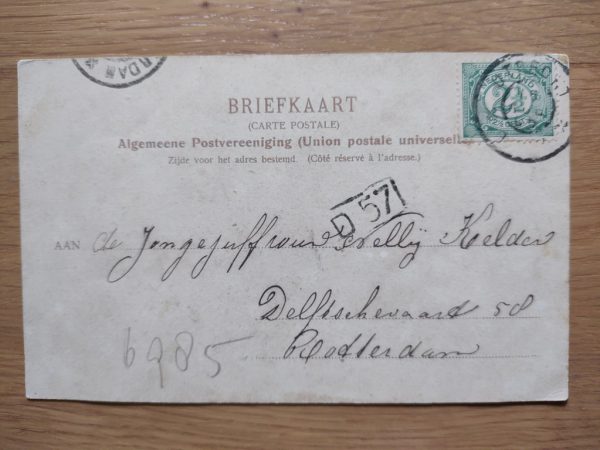 RDAM
BRIEFKAART
(CARTE POSTALE)
Algemeene Postvereeniging (Union postale universelle
Zijde voor het adres bestemd. (Côté réservé à l'adresse.)
NEDERLAND
2½
D 57
AAN de Jongejuffrouw Nellij Kelder
Delftschevaart 58
Rotterdam
6985